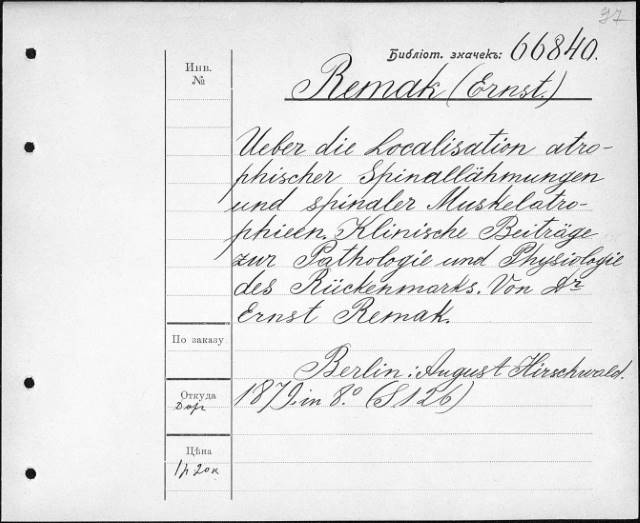 37
Библіот. значекъ: 66840.
Инв.
№
Remak (Ernst.)
Ueber die Localisation atro-
phischer Spinallähmungen
und spinaler Muskelatro-
phieen. Klinische Beiträge
zur Pathologie und Physiologie
des Rückenmarks. Von Dr
Ernst Remak.
Berlin: August Hirschwald.
1879. in 8.° (S 126)
По заказу
Откуда
Дар
Цѣна
1р 20к